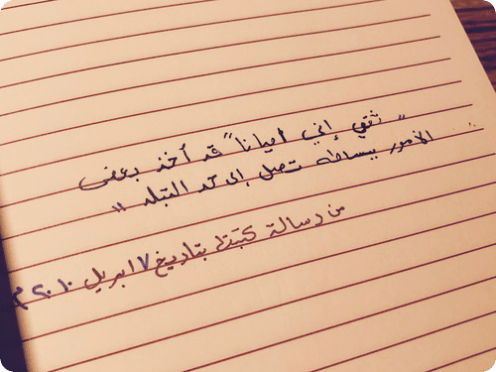 " ثقي إني احيانا" قد أخذ بعض
الأمور ببساطه تصل إلى حد التبلد "
من رسالة كتبتها بتاريخ ١٧ ابريل ٢٠١٠ م